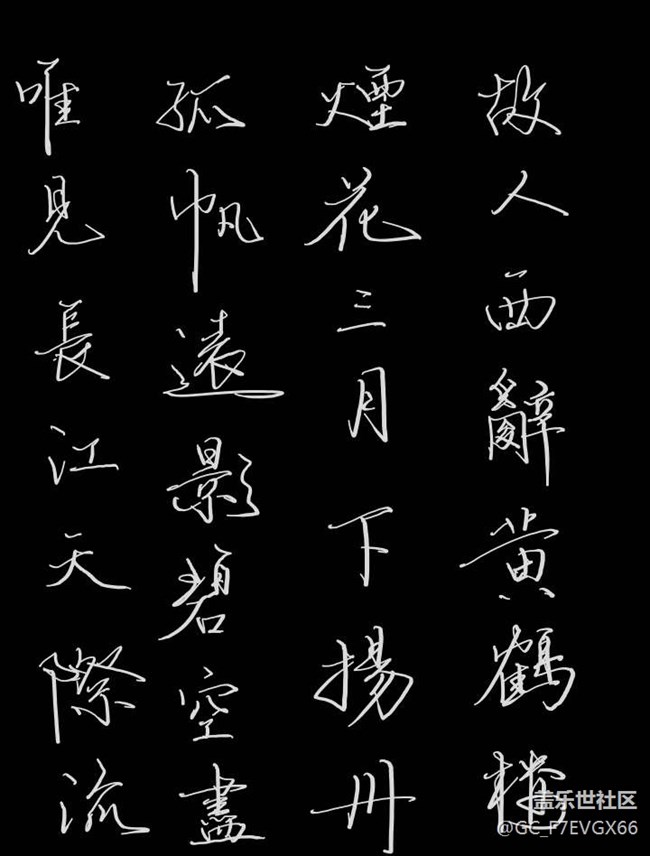 故人西辭黄鶴樓
煙花三月下揚州
孤帆遠影碧空盡
唯見長江天際流
盖乐世社区
@GC_F7EVGX66